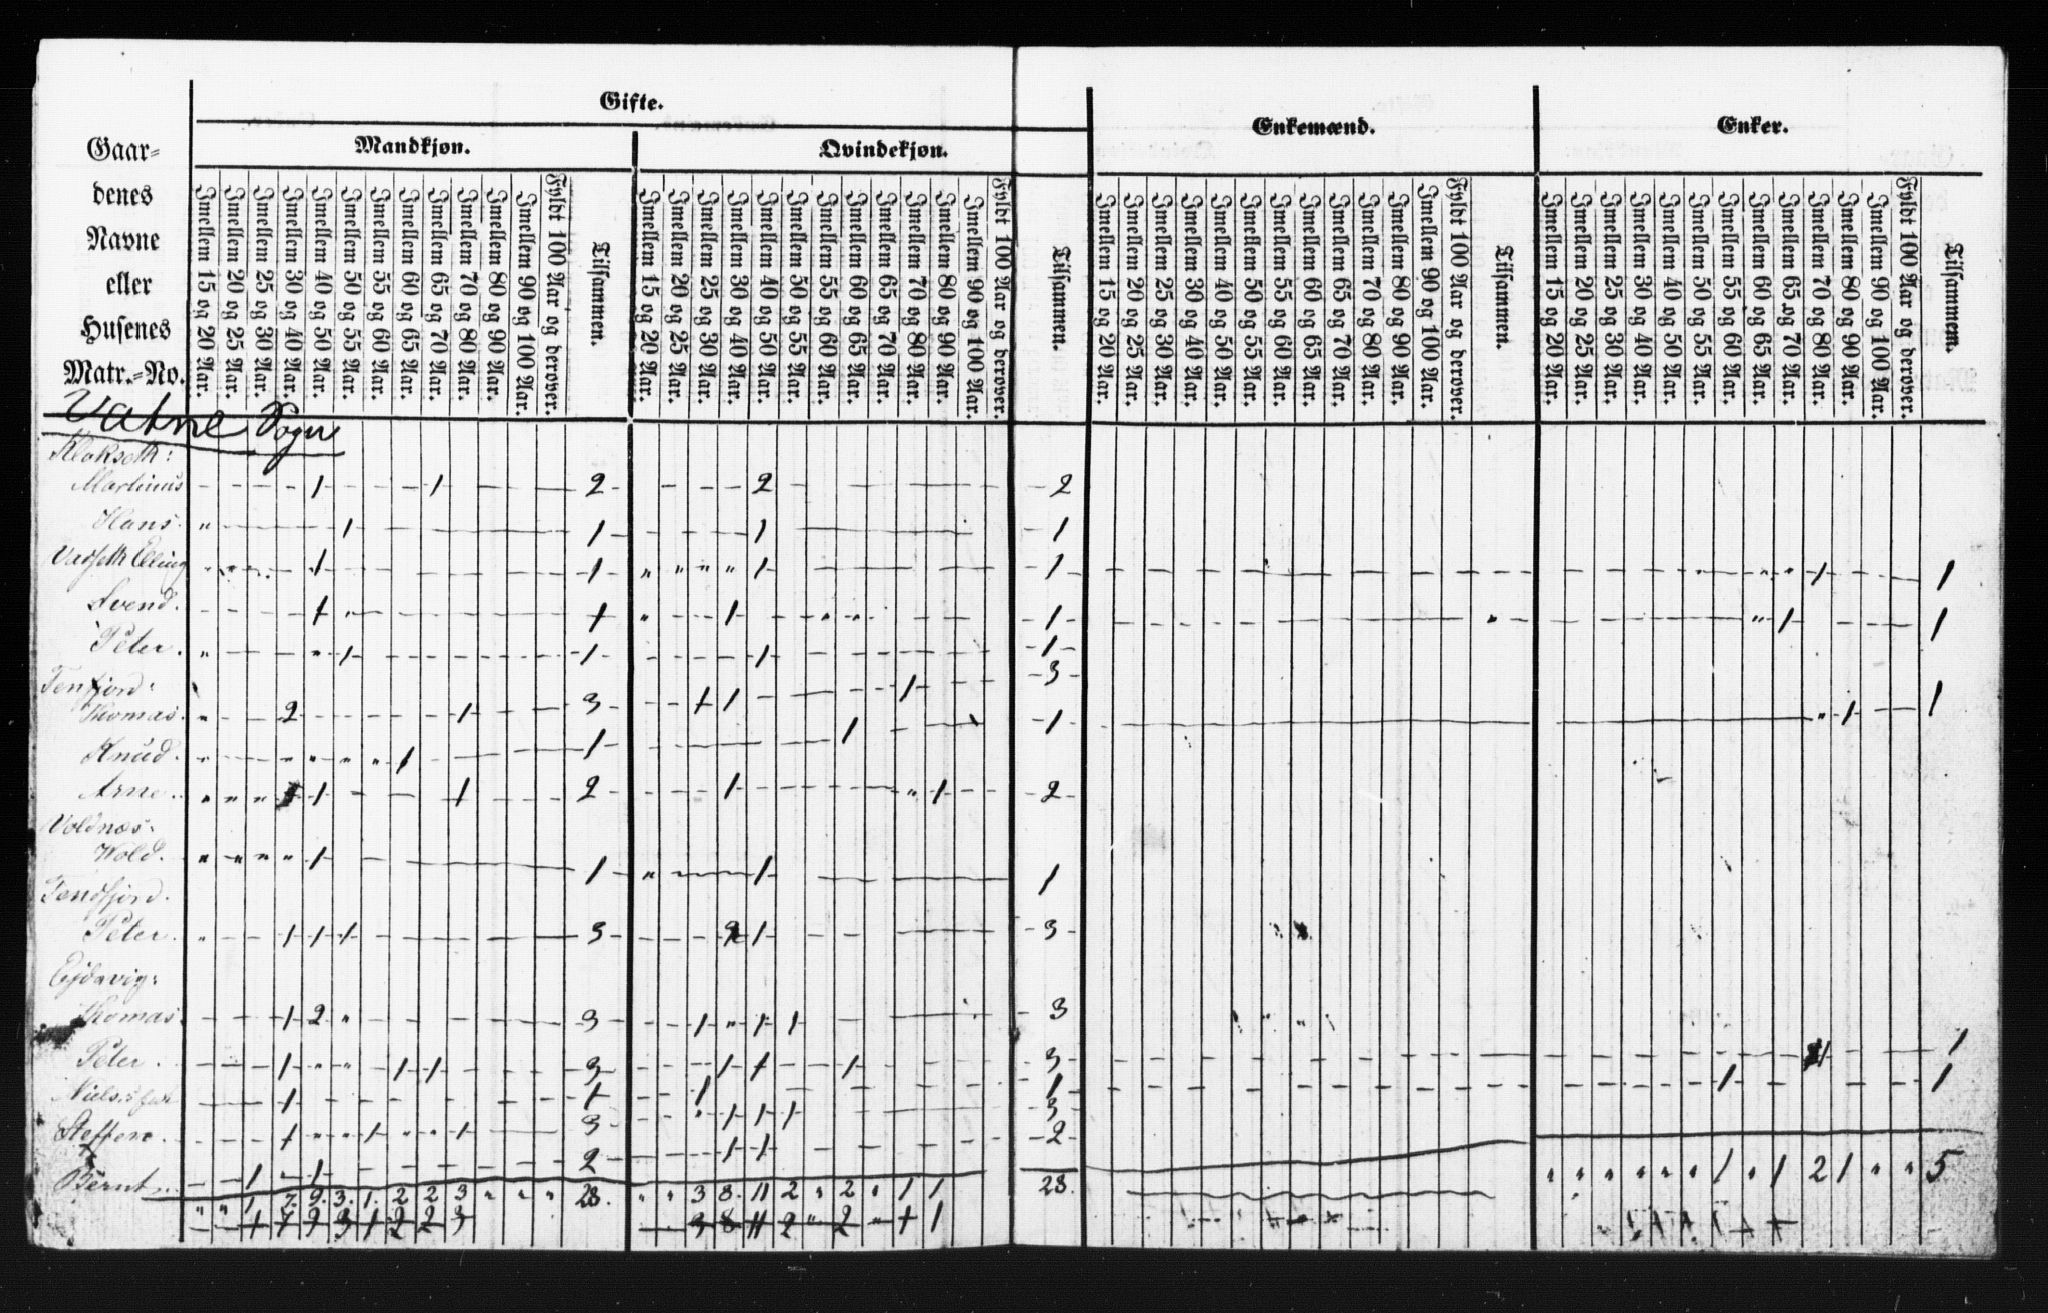 Gifte.
Enkemænd.
Enker.
Mandkjøn.
Qvindekjøn.
Gaar=
denes
Navne
eller
Husenes
Matr.=No.
Imellem 15 og 20 Aar.
Imellem 20 og 25 Aar.
Imellem 25 og 30 Aar.
Imellem 30 og 40 Aar.
Imellem 40 og 50 Aar.
Imellem 50 og 55 Aar.
Imellem 55 og 60 Aar.
Imellem 60 og 65 Aar.
Imellem 65 og 70 Aar.
Imellem 70 og 80 Aar.
Imellem 80 og 90 Aar.
Imellem 90 og 100 Aar.
Fyldt 100 Aar og derover.
Tilsammen.
Imellem 15 og 20 Aar.
Imellem 20 og 25 Aar.
Imellem 25 og 30 Aar.
Imellem 30 og 40 Aar.
Imellem 40 og 50 Aar.
Imellem 50 og 55 Aar.
Imellem 55 og 60 Aar.
Imellem 60 og 65 Aar.
Imellem 65 og 70 Aar.
Imellem 70 og 80 Aar.
Imellem 80 og 90 Aar.
Imellem 90 og 100 Aar.
Fyldt 100 Aar og derover.
Tilsammen.
Imellem 15 og 20 Aar.
Imellem 20 og 25 Aar.
Imellem 25 og 30 Aar.
Imellem 30 og 40 Aar.
Imellem 40 og 50 Aar.
Imellem 50 og 55 Aar.
Imellem 55 og 60 Aar.
Imellem 60 og 65 Aar.
Imellem 65 og 70 Aar.
Imellem 70 og 80 Aar.
Imellem 80 og 90 Aar.
Imellem 90 og 100 Aar.
Fyldt 100 Aar og derover.
Tilsammen.
Imellem 15 og 20 Aar.
Imellem 20 og 25 Aar.
Imellem 25 og 30 Aar.
Imellem 30 og 40 Aar.
Imellem 40 og 50 Aar.
Imellem 50 og 55 Aar.
Imellem 55 og 60 Aar.
Imellem 60 og 65 Aar.
Imellem 65 og 70 Aar.
Imellem 70 og 80 Aar.
Imellem 80 og 90 Aar.
Imellem 90 og 100 Aar.
Fyldt 100 Aar og derover.
Tilsammen.
Vatne Sogn
Klokseth:
Martinus 1 1 2 2 2
Hans. 1 1 1 1
Vatseth Elling 1 1 1 1 1 1
Svend. 1 1 1 1 1 1
Peter. 1 1 1 1
Tenfjord:
Thomas. 2 1 3 1 1 1 3 1 1
Knud. 1 1 1 1
Arne. 1 1 2 1 1 2
Voldnæs:
Wold. 1 1 1 1
Tendfjord.
Peter. 1 1 1 3 2 1 3
Ejdavig:
Thomas. 1 2 3 1 1 1 3
Peter. 1 1 1 3 1 1 1 3 1 1
Niels 1 1 1 1 1 1
Steffen. 1 1 1 3 1 1 1 3
Bernt. 1 1 2 1 1 2
" " 1 7. 9. 3. 1. 2 2 3 " " " 28. " " 3 8. 11 2 " 2 " 1 1 28. " " " " " " 1 " 1 2 1 " " 5
1 7 9 3 1 2 2 3 3 8 11 2 " 2 " 1 1